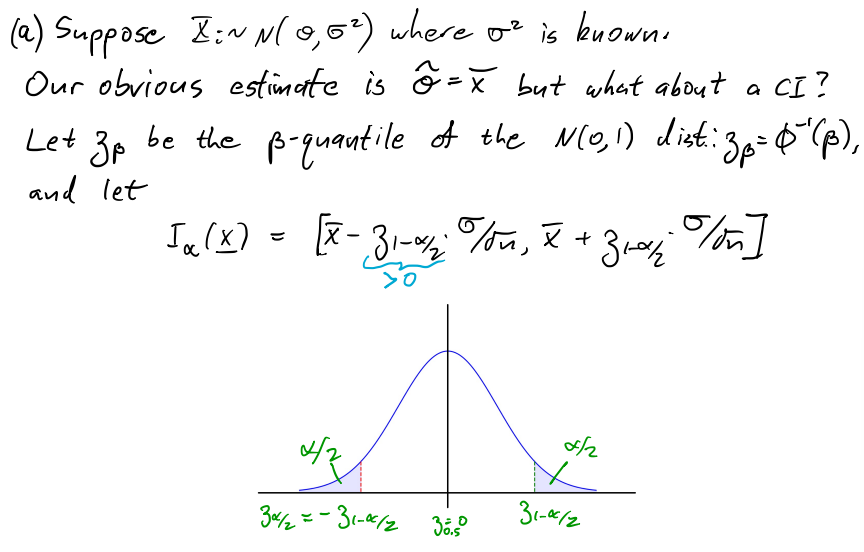 (a) Suppose X_i ~ N(θ, σ²) where σ² is known.
Our obvious estimate is θ̂ = x̄ but what about a CI?
Let z_β be the β-quantile of the N(0,1) dist.: z_β = Φ⁻¹(β),
and let
I_α(x) = [x̄ - z_{1-α/2} · σ/√n, x̄ + z_{1-α/2} · σ/√n]
>0
α/2 α/2
z_{α/2} = - z_{1-α/2} z_{0.5} = 0 z_{1-α/2}